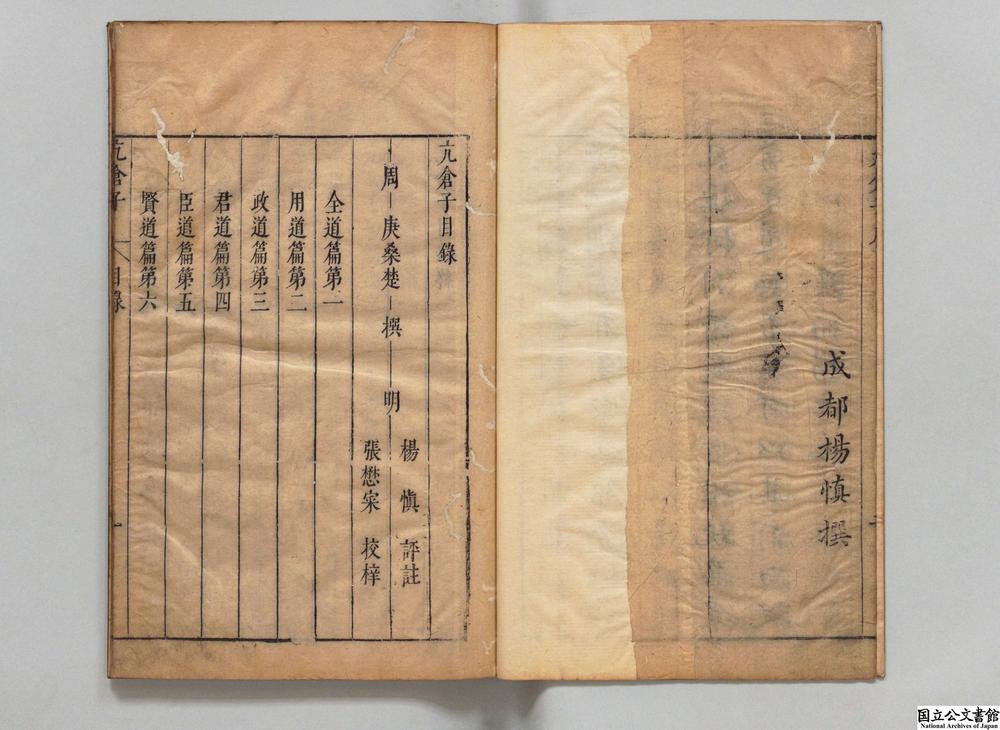 成都楊慎撰
亢倉子目錄
周 庚桑楚 撰 明
楊慎 評註
張懋寀 校梓
全道篇第一
用道篇第二
政道篇第三
君道篇第四
臣道篇第五
賢道篇第六
亢倉子 目錄 一
国立公文書館
National Archives of Japan